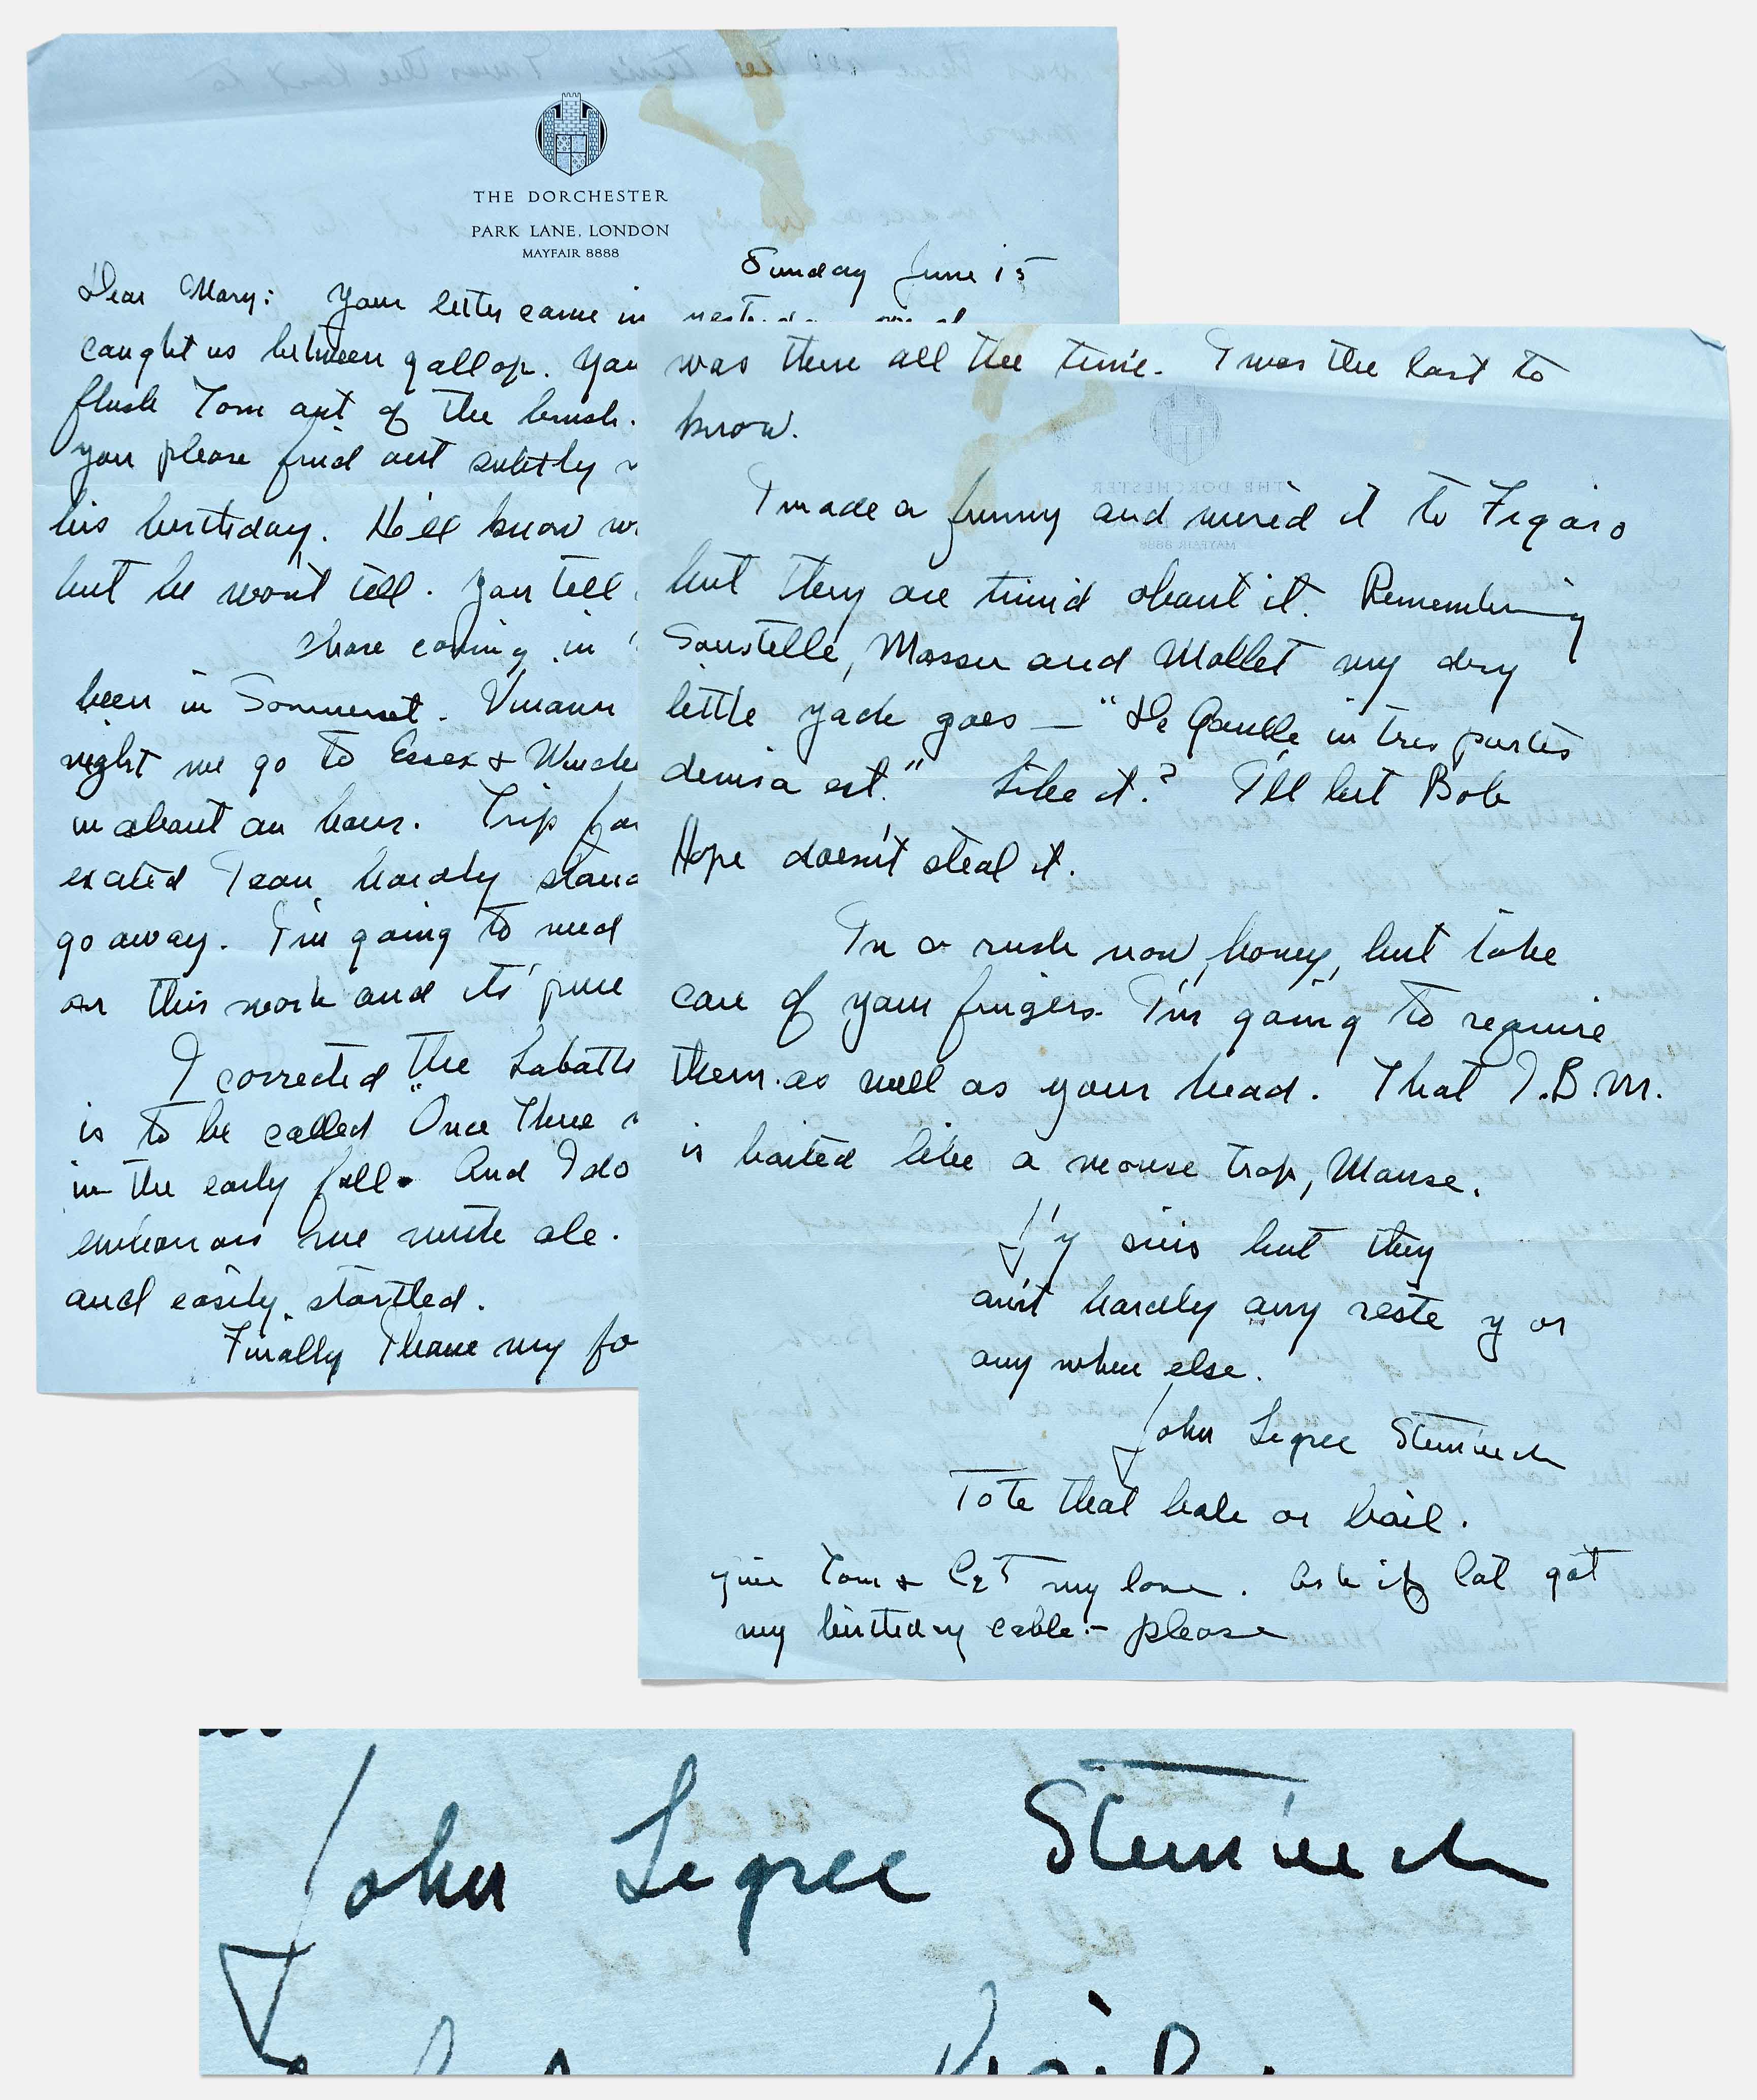 THE DORCHESTER
PARK LANE, LONDON
MAYFAIR 8888
Sunday June 15
Dear Mary: Your letter came in
caught us between gallop. You
flush Tom out of the brush.
you please find out subtly
his birthday. He'll know
but he won't tell. You tell
coming in
been in Sommerset.
night we go to Essex &
in about an hour. Trip
I can hardly
go away. I'm going to need
on this work and its' pure
I corrected the
is to be called "Once There
in the early fall. And I do
and easily startled.
Finally I have my
was there all the time. I was the last to
know.
I made a funny and wired it to Figaro
but they are timid about it. Remembering
Soustelle, Massu and Mollet my dry
little yack goes — "De Gaulle in tres partes
devisa est." Like it? I'll bet Bob
Hope doesn't steal it.
In a rush now, honey, but take
care of your fingers. I'm going to require
them as well as your head. That I.B.M.
is baited like a mouse trap, Mouse.
but they
ain't hardly any reste y or
any where else.
John Legree Steinbeck
Tote that bale or bail.
give Tom & my love. Ask if Cat got
my birthday cable - please
John Legree Steinbeck